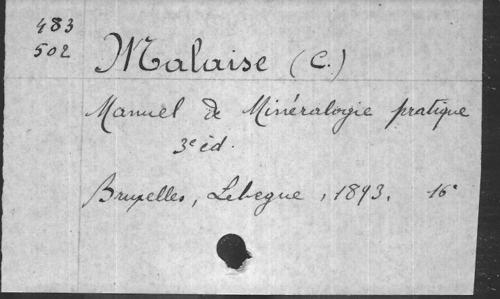 483
502
Malaise (C.)
Manuel de Minéralogie pratique
3e éd.
Bruxelles, Lebègue, 1893. 16°